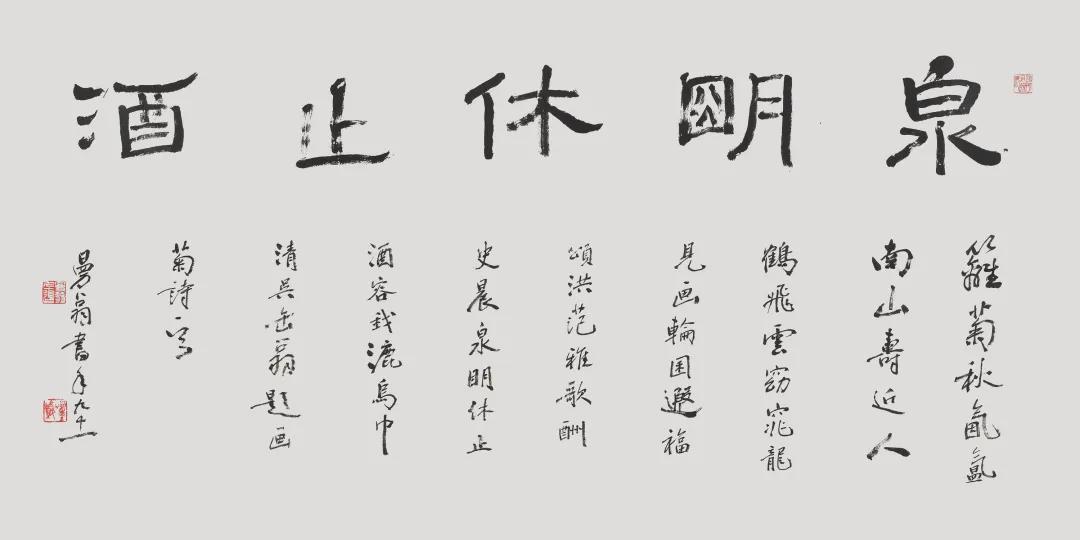 泉朙休止酒
籬菊秋氤氳
南山壽近人
鶴飛雲窈窕龍
見画輪囷遐福
頌洪范雅歌酬
史晨泉眀休止
酒容我漉烏巾
清吳缶翁題画
菊詩一首
曼翁書年九十一